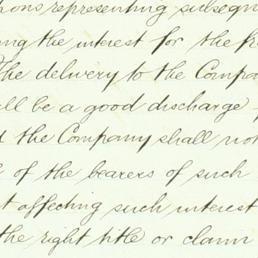 representing subsequ
the interest for the
The delivery to the Compan
ll be a good discharge
the Company shall not
of the bearers of such
t affecting such interest
the right title or claim